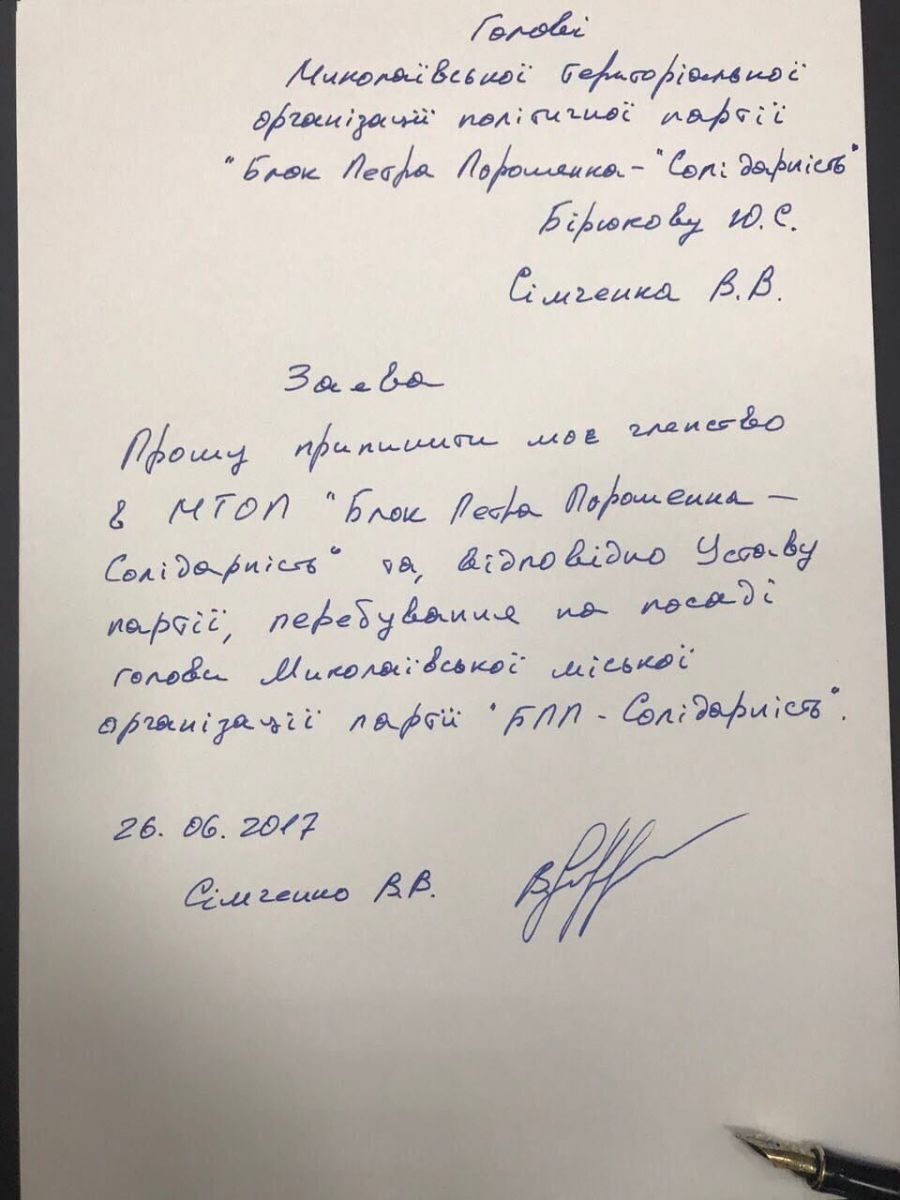 Голові
Миколаївської територіальної
організації політичної партії
"Блок Петра Порошенка – "Солідарність"
Бірюкову Ю.С.
Сімченка В.В.
Заява
Прошу припинити моє членство
в МТОП "Блок Петра Порошенка –
Солідарність" та, відповідно Уставу
партії, перебування на посаді
голови Миколаївської міської
організації партії "БПП – Солідарність".
26.06.2017
Сімченко В.В.